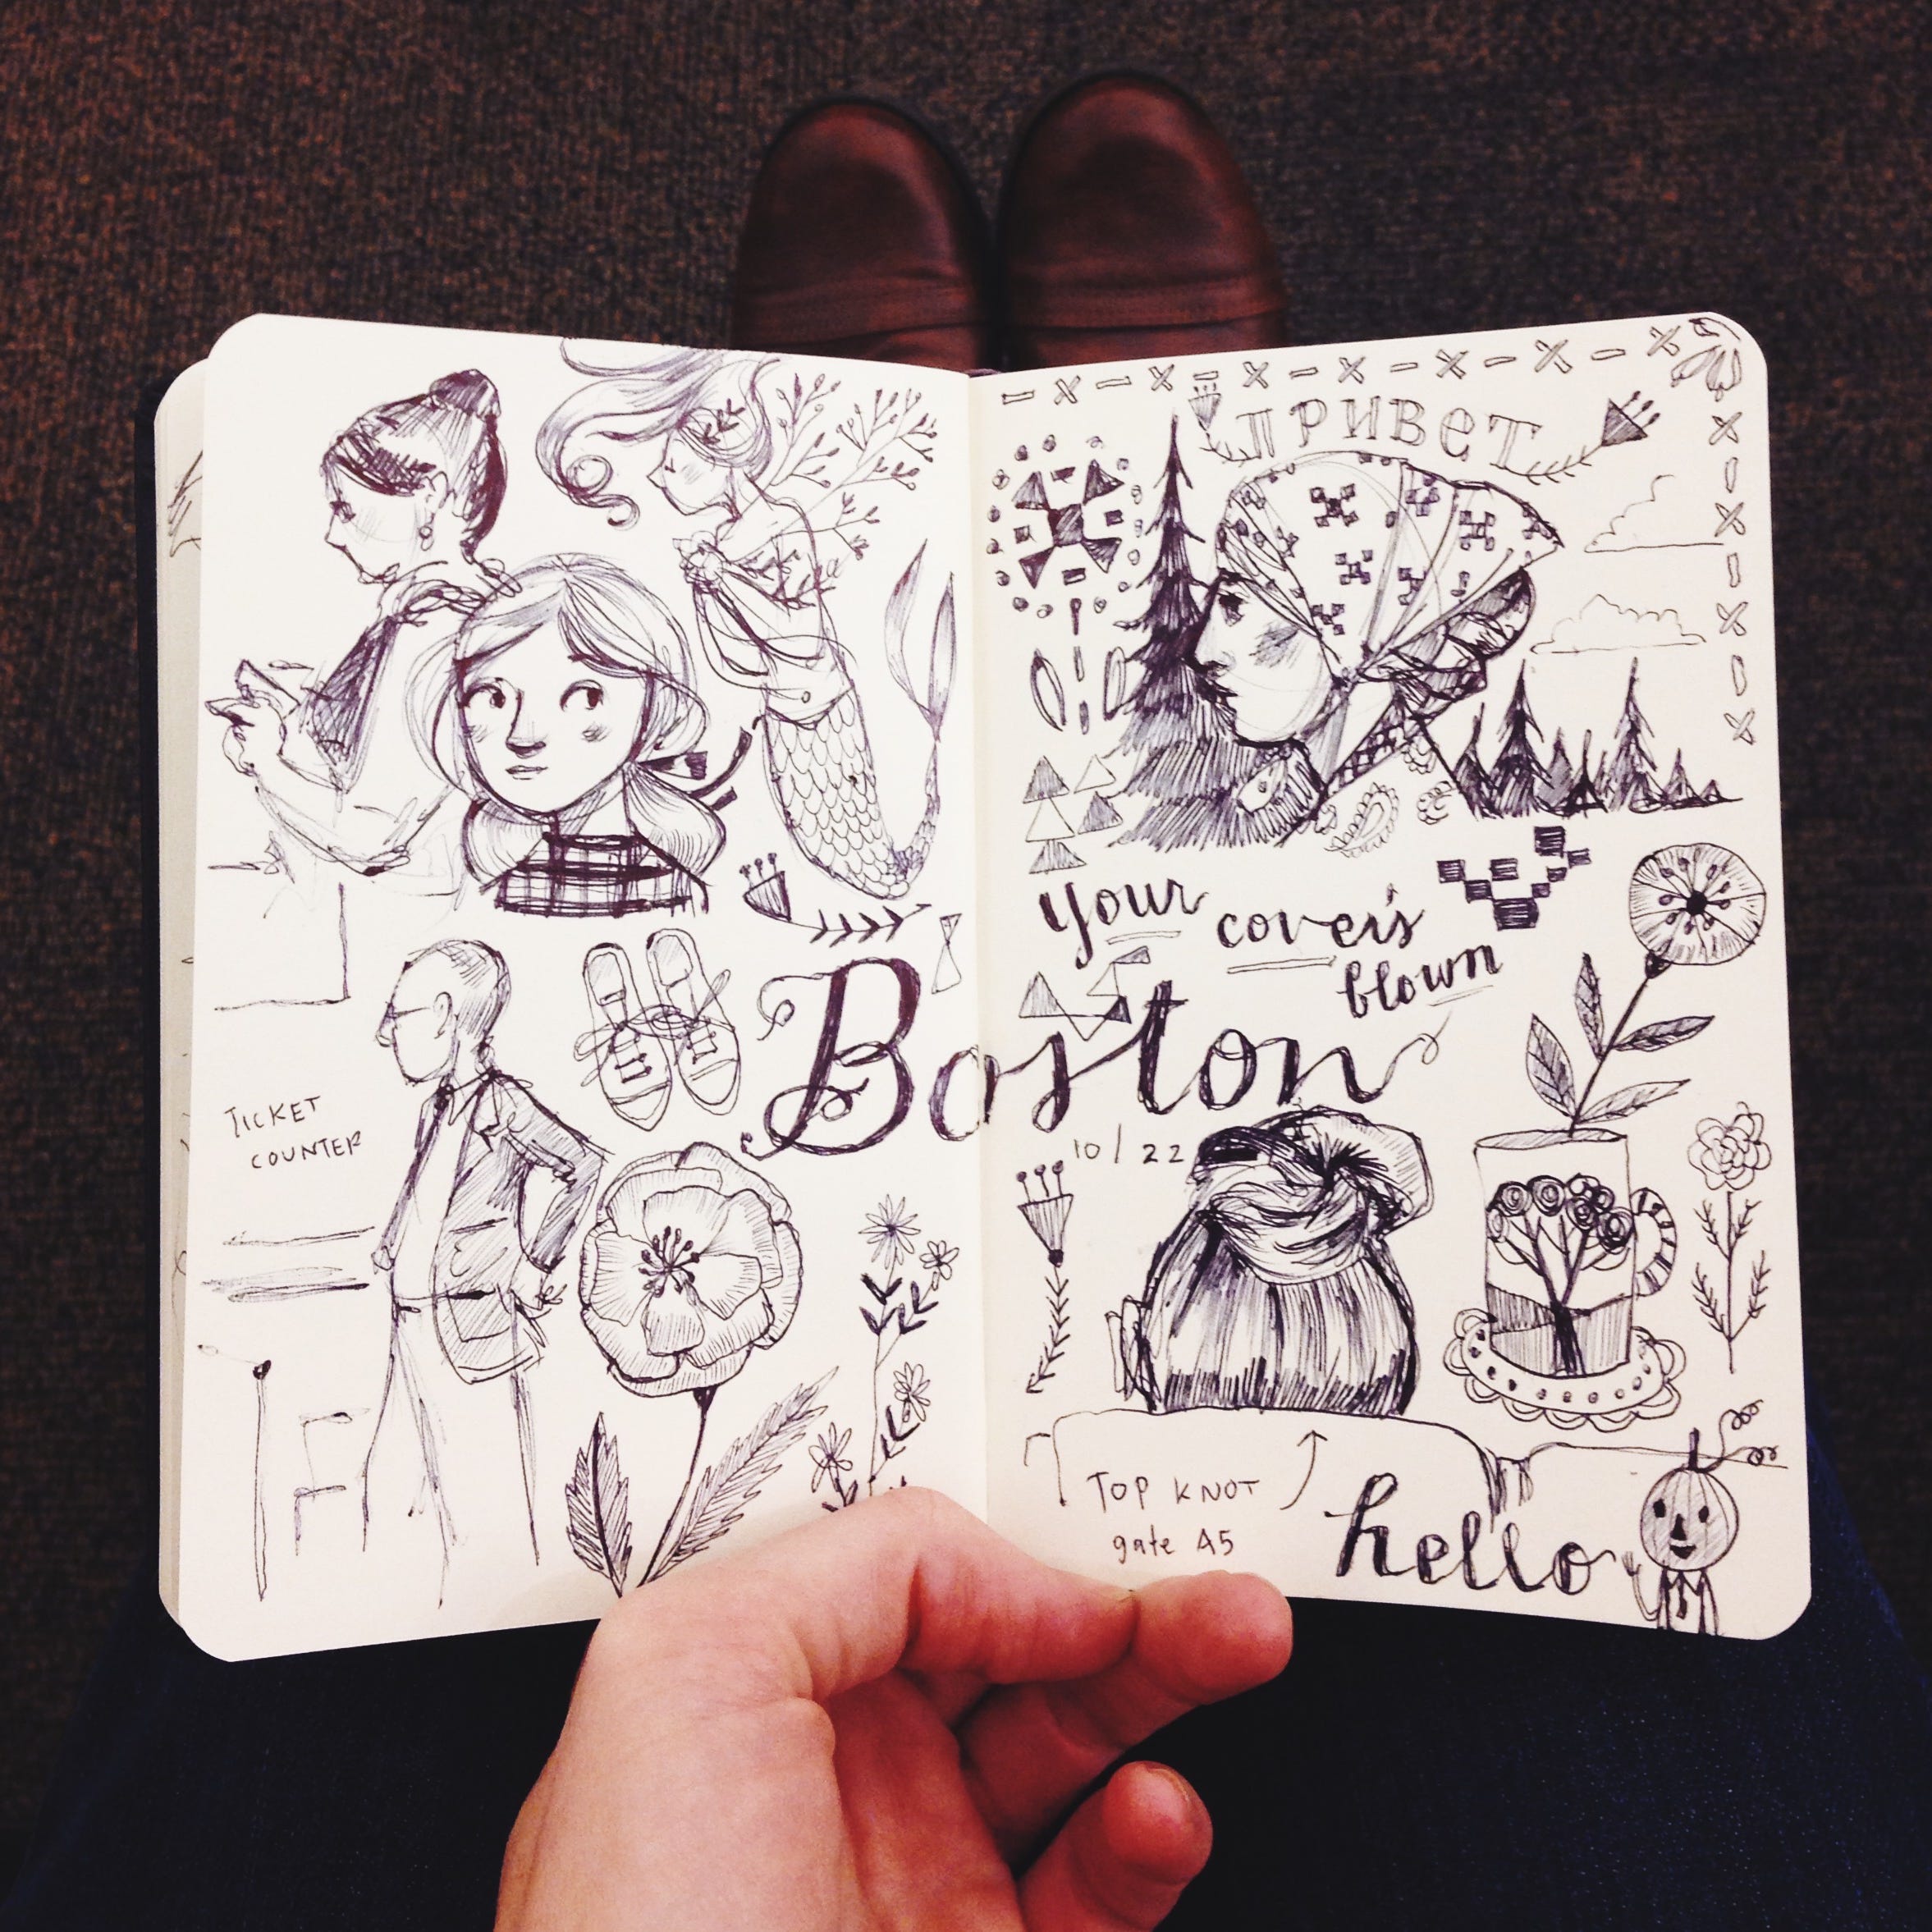 ПРИВЕТ
your cover's
blown
Boston
10/22
TICKET
COUNTER
TOP KNOT
gate A5
hello